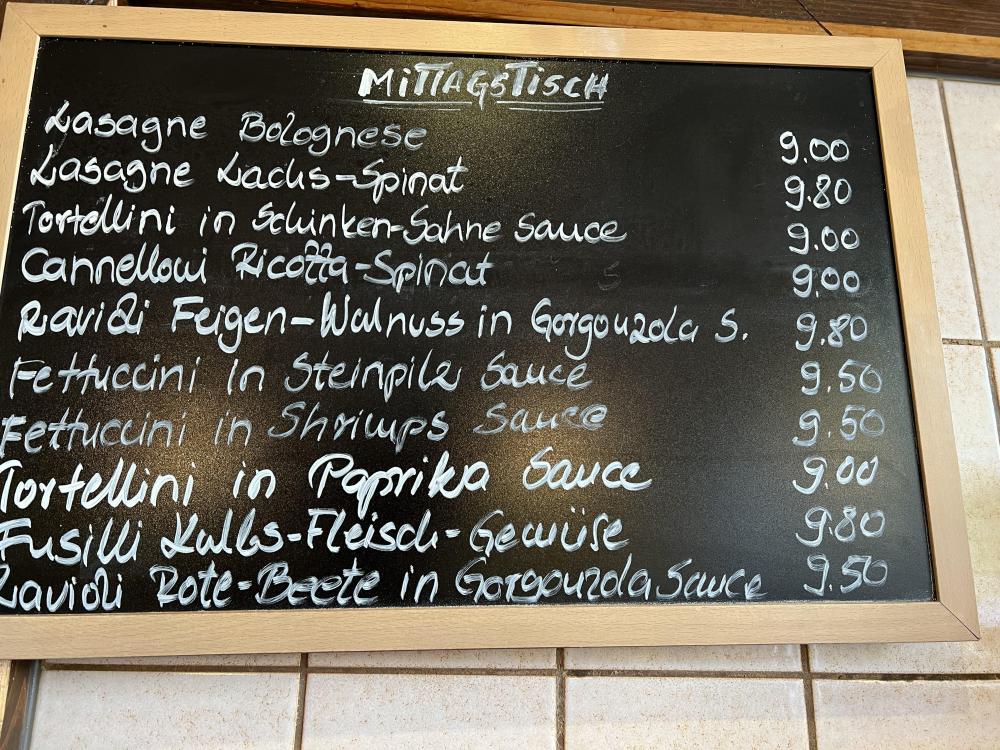 MITTAGSTISCH
Lasagne Bolognese 9.00
Lasagne Lachs-Spinat 9.80
Tortellini in Schinken-Sahne Sauce 9.00
Cannelloni Ricotta-Spinat 9.00
Ravioli Feigen-Walnuss in Gorgonzola S. 9.80
Fettuccini in Steinpilz Sauce 9.50
Fettuccini in Shrimps Sauce 9.50
Tortellini in Paprika Sauce 9.00
Fusilli Kalbs-Fleisch-Gemüse 9.80
Ravioli Rote-Beete in Gorgonzola Sauce 9.50